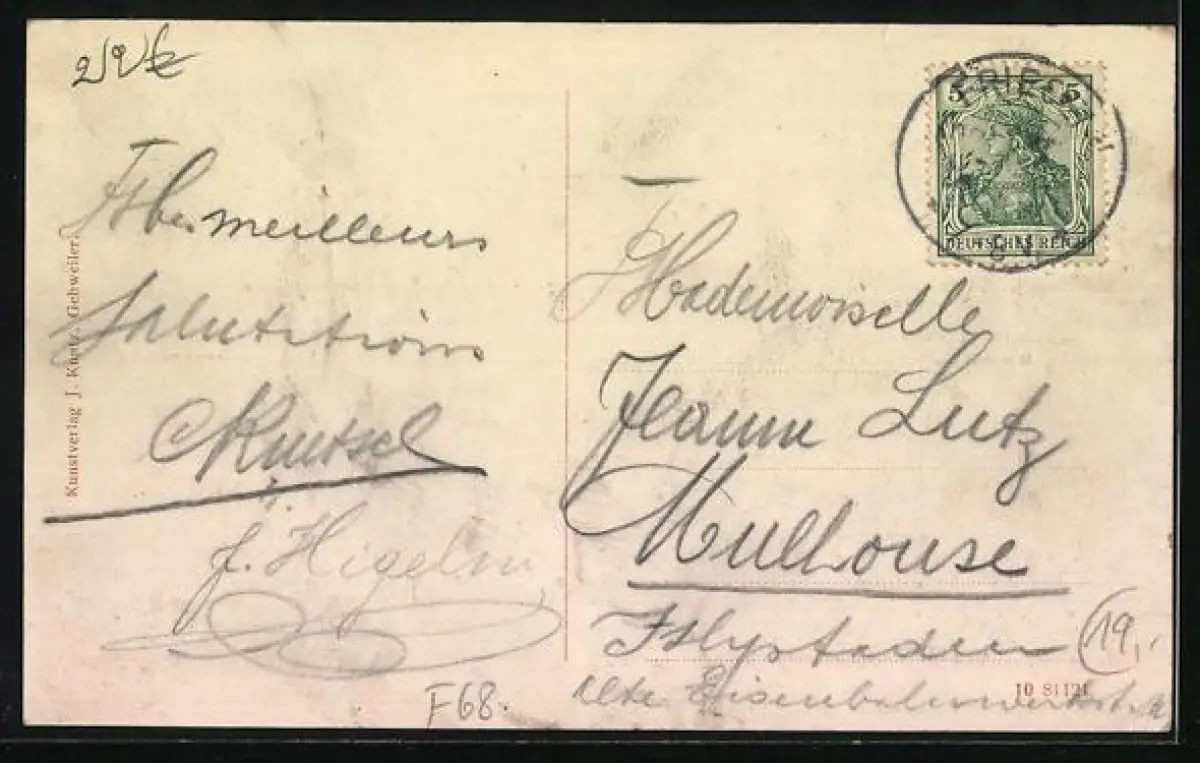 meilleurs
Salutations
J. Higelin
Kunstverlag J. Kurtz, Gebweiler.
F68.
5 5
DEUTSCHES REICH
Mademoiselle
Jeanne Lutz
Mulhouse
19.
alte Eisenbahnwerkst.
10 81121